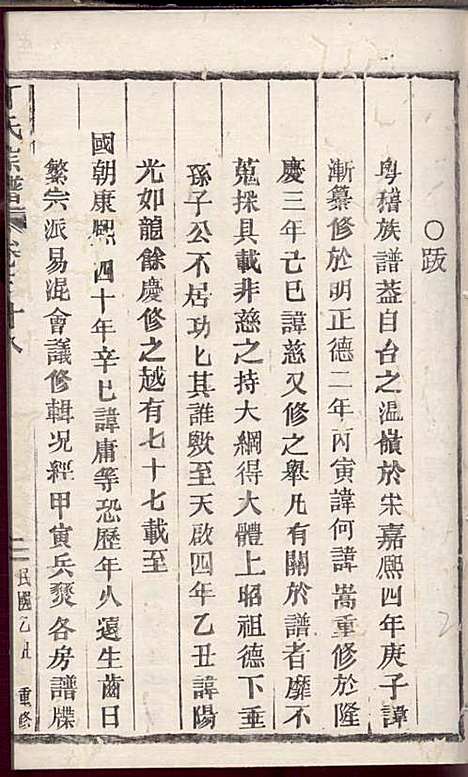 〇跋
粤稽族譜葢自台之温嶺於宋嘉熙四年庚子諱
漸纂修於明正德二年丙寅諱何諱嵩重修於隆
慶三年己巳諱慈又修之舉凡有關於譜者靡不
蒐採具載非慈之持大綱得大體上昭祖德下垂
孫子公不居功匕其誰歟至天啟四年乙丑諱陽
光如龍餘慶修之越有七十七載至
國朝康熙四十年辛巳諱庸等恐歷年久遠生齒日
繁宗派易混會議修輯况經甲寅兵燹各房譜牒
氏宗譜
民國乙丑 重修